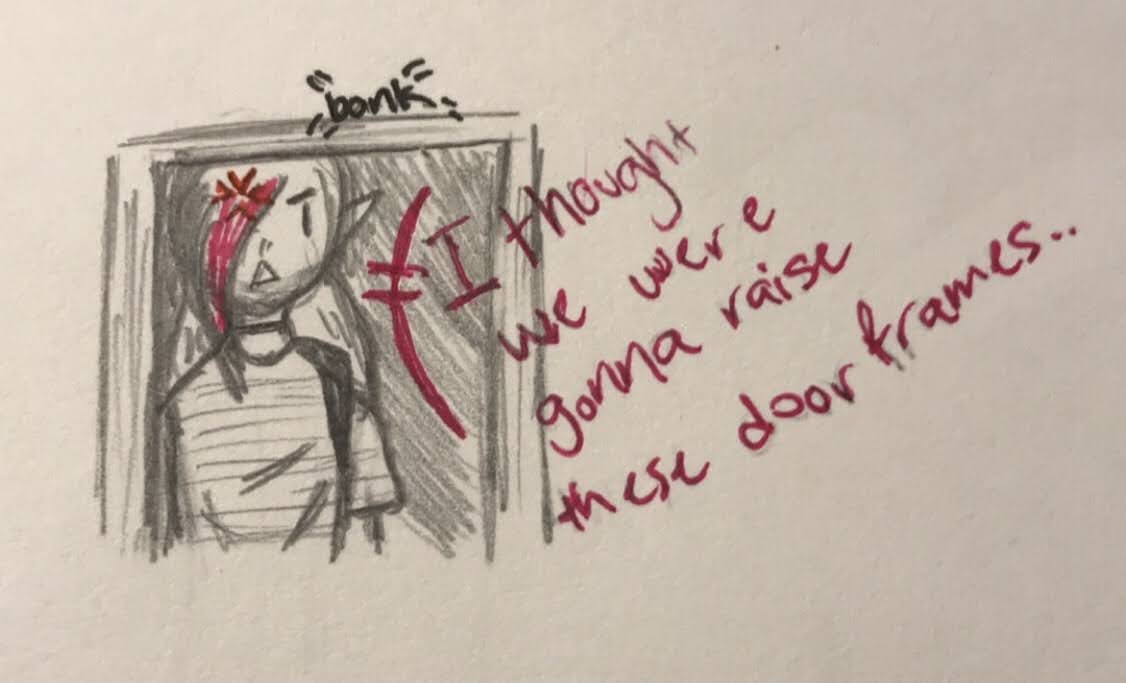 bonk
I thought
we were
gonna raise
these door frames..